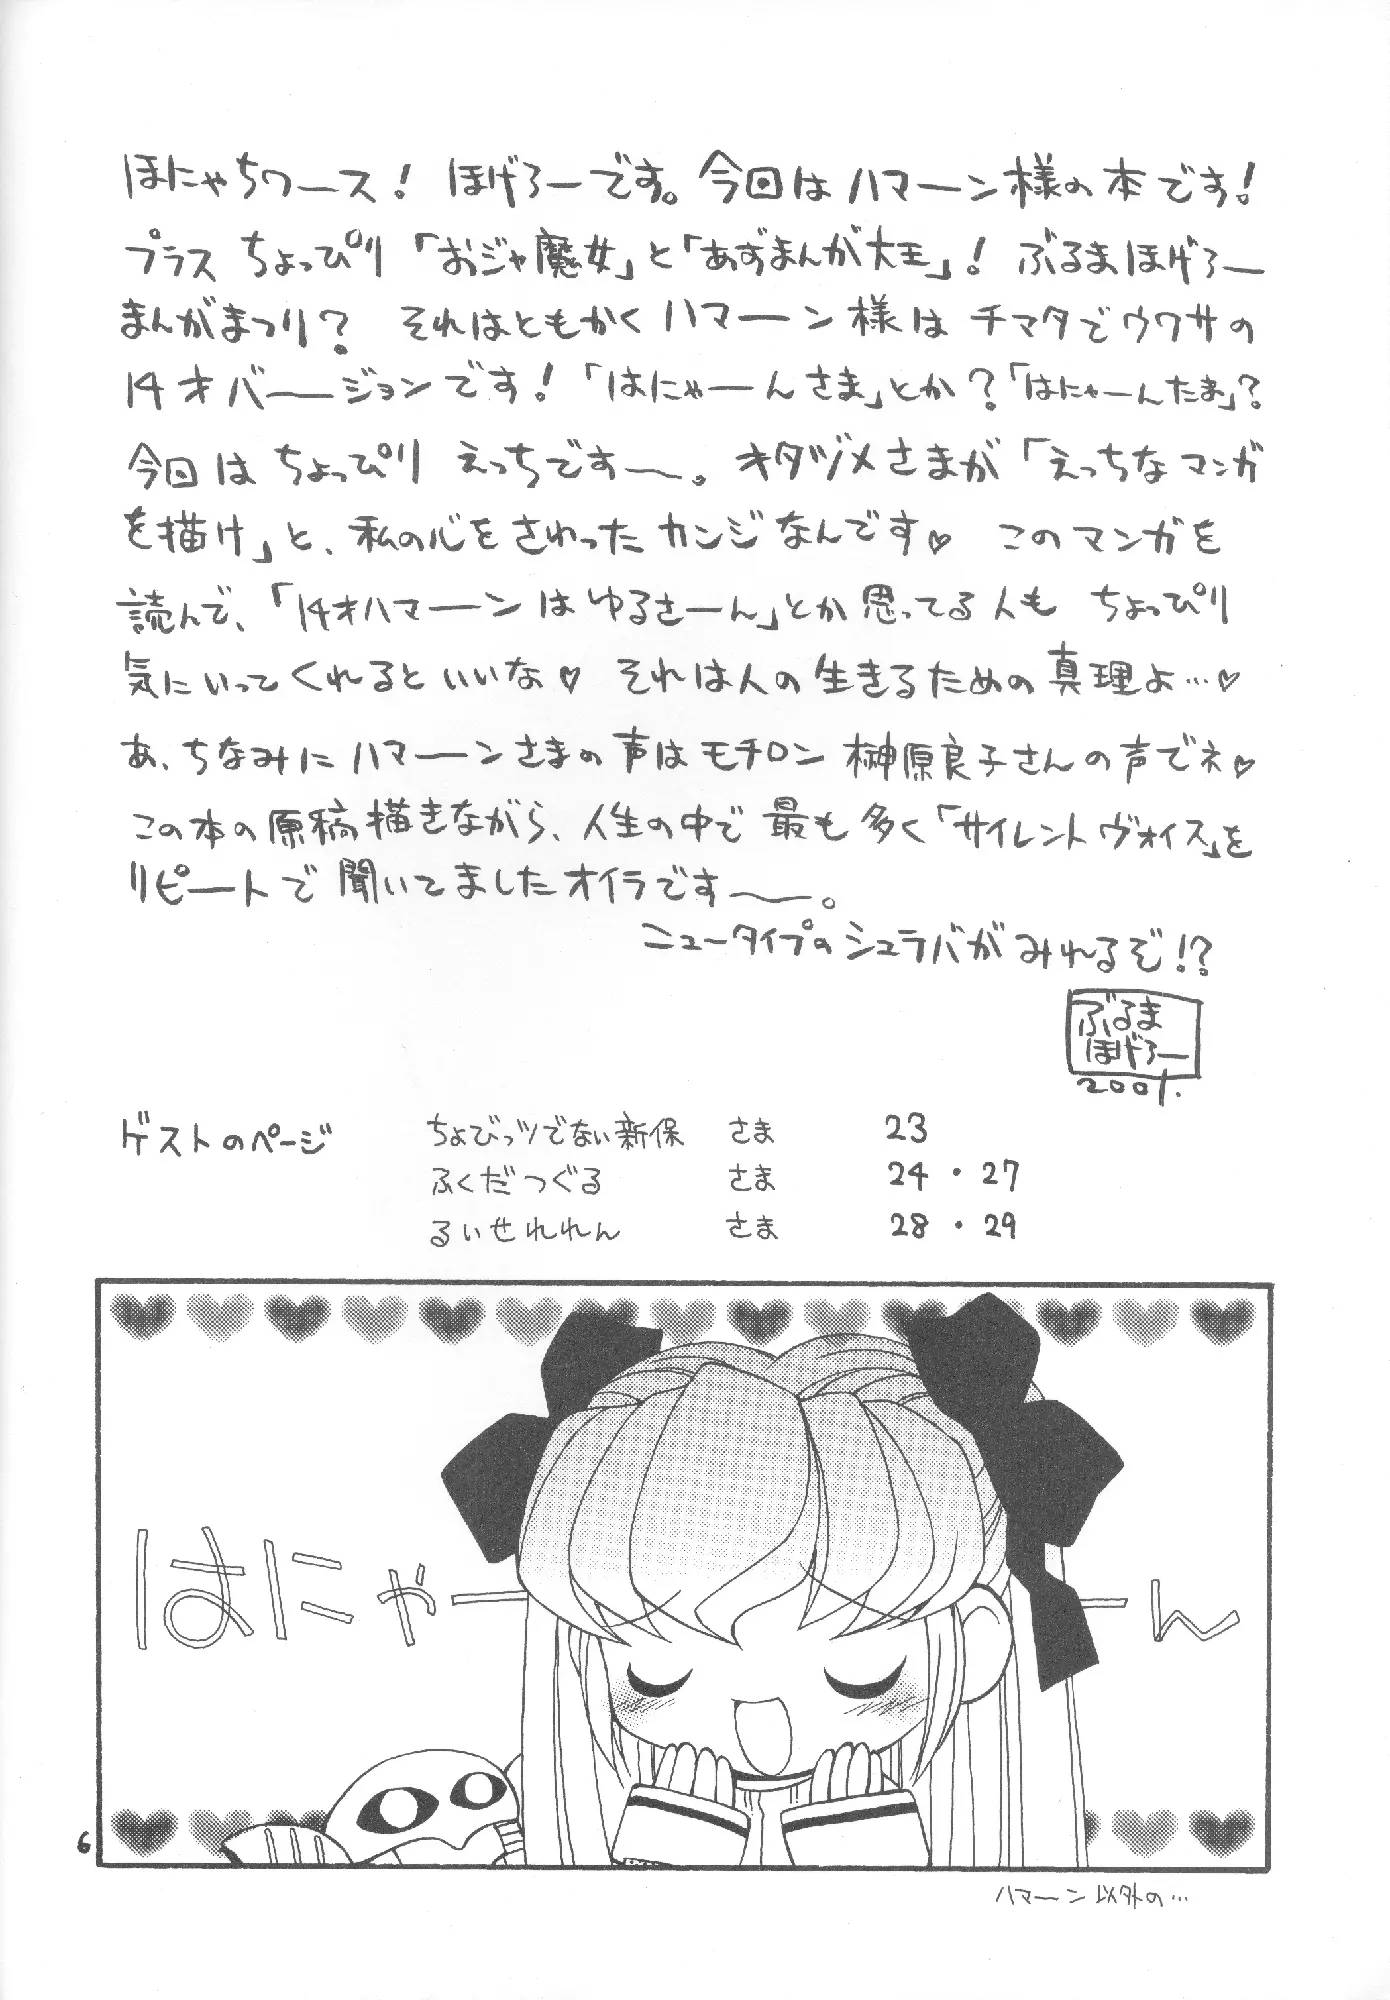 ほにゃちワース! ほげろーです。今回はハマーン様の本です!
プラス ちょっぴり「おジャ魔女」と「あずまんが大王」! ぶるまほげろー
まんがまつり? それはともかくハマーン様は チマタでウワサの
14才バージョンです!「はにゃーんさま」とか?「はにゃーんたま」?
今回は ちょっぴり えっちです〜。オタヅメさまが「えっちなマンガ
を描け」と、私の心をさわったカンジなんです♡ このマンガを
読んで、「14才ハマーンは ゆるさーん」とか思ってる人も ちょっぴり
気にいってくれるといいな♡ それは人の生きるための真理よ…♡
あ、ちなみにハマーンさまの声はモチロン 榊原良子さんの声でネ♡
この本の原稿描きながら、人生の中で 最も多く「サイレントヴォイス」を
リピートで 聞いてましたオイラです〜。
ニュータイプのシュラバがみれるぞ!?
ぶるま
ほげろー
2001.
ゲストのページ
ちょびっツでない新保 さま 23
ふくだつぐる さま 24・27
るいせれれん さま 28・29
はにゃーん
6
ハマーン以外の…